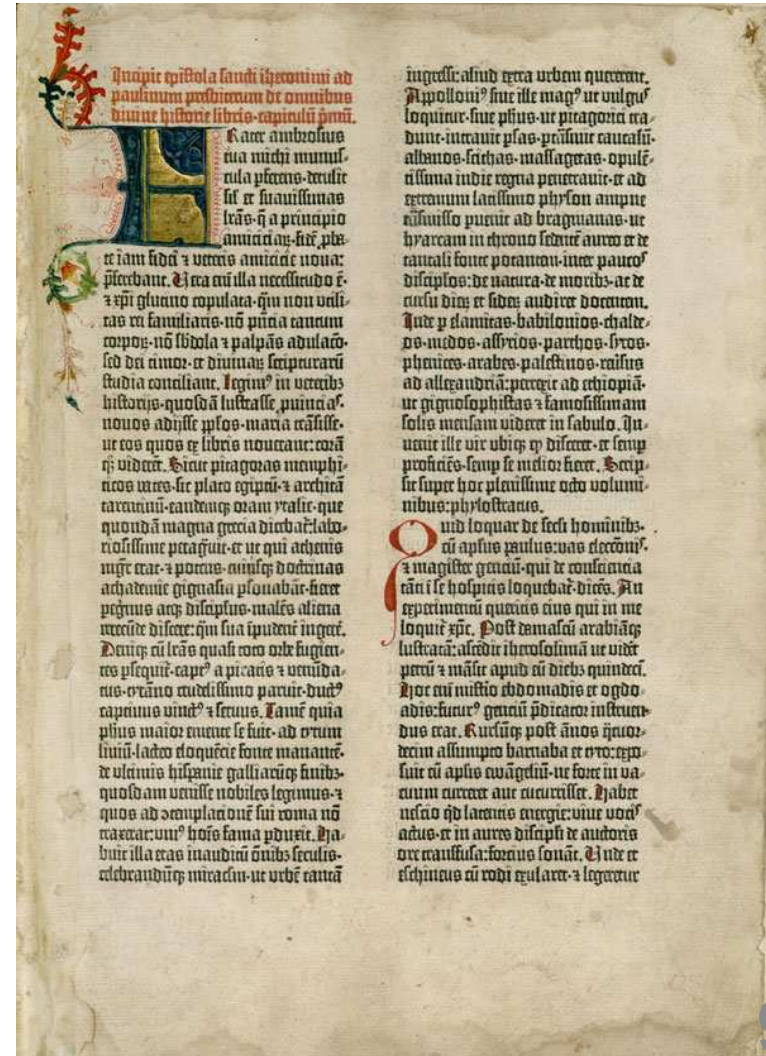 Incipit epistola sancti iheronimi ad
paulinum presbiterum de omnibus
divine historie libris·capitulū pͥmū.
FRater ambrosius
tua michi munus-
cula ꝑferens·detulit
sil̓ et suavissimas
lr̄as·q̄ a principio
amiciciaꝝ·fidē ꝓba-
te iam fidei ⁊ veteris amicicie nova:
ꝓferebant. Uera em̄ illa necessitudo ē·
⁊ xp̄i glutino copulata·qm̄ non utili-
tas rei familiaris·nō pn̄tia tantum
corpoꝝ·nō sb̄dola ⁊ palpās adulacō·
sed dei timor·et divinaꝝ scripturarū
studia conciliant. Legimꝰ in veteribꝫ
historijs·quosdā lustrasse ꝓvincias·
novos adijsse pp̄los·maria trāsisse·
ut eos quos ex libris noverant: corā
qꝫ viderēt. Sicut pitagoras memphi-
ticos vates·sic plato egiptū·⁊ architā
tarentinū·eandemqꝫ oram ytalie·que
quondā magna grecia dicebat̄: labo-
riosissime peragͣvit·et ut qui athenis
mgr̄ erat·⁊ potens·cuiusqꝫ doctrinas
achademie gignasia ꝑsonabāt·fieret
ꝑegrinus atqꝫ discipl̓us·malēs aliena
verecūde discere: qm̄ sua īpudent̄ ingerē.
Deniqꝫ cū lr̄as quasi toto orbe fugien-
tes ꝑsequit̄·captꝰ a piratis ⁊ venūda-
tus·tyrāno crudelissimo paruit·ductꝰ
captivus vinctꝰ ⁊ servus. Tamē quia
ph̄us maior emente se fuit·ad tytum
liviū·lacteo eloquēcie fonte manantē·
de ultimis hispanie galliarūqꝫ finibꝫ·
quosdam venisse nobiles legimus·⁊
quos ad ꝯtemplacionē sui roma nō
traxerat: uniꝰ hoīs fama ꝑduxit. Ha-
buit illa etas inauditū ōnibꝫ seculis·
celebrandūqꝫ miraclm̄·ut urbē tantā
ingressi: aliud extra urbem quererent.
Appolloniꝰ sive ille magꝰ ut vulgus
loquitur·sive ph̄us·ut pitagorici tra-
dunt·intravit ꝑsas·ꝑtͣnsivit caucasū·
albanos·scithas·massagetas·opulē-
tissima indie regna penetravit·et ad
extremum latissimo physon ampne
trāsmisso ꝑvenit ad bragmanas·ut
hyarcam in throno sedentē aureo et de
tantali fonte potantem·inter paucos
discipl̓os: de natura·de moribꝫ·ac de
cursu dieꝝ et sideꝝ audiret docentem.
Inde ꝑ elamitas·babilonios·chalde-
os·medos·assyrios·parthos·syros·
phenices·arabes·palestinos·reversus
ad allexandriā: perrexit ad ethiopiā·
ut gignosophistas ⁊ famosissimam
solis mensam videret in sabulo. In-
venit ille vir ubiqꝫ qꝫ disceret·et semꝑ
proficiēs·semꝑ se melior fieret. Scrip-
sit super hoc plenissime octo volumi-
nibus: phylostratus.
QUid loquar de secl̓i hominibꝫ·
cū apl̓us paulus: vas elecconī·
⁊ magister genciū·qui de consciencia
tāti ī se hospitis loquebat̄·dicēs. An
experimentū queritis eius qui in me
loquit̄ xp̄c. Post damascū arabiāqꝫ
lustratā: ascēdit iherosolimā ut vidēt
petrū ⁊ māsit apud eū diebꝫ quindecī.
Hoc em̄ misterio ebdomadis et ogdo-
adis: futurꝰ genciū ꝑdicator instruen-
dus erat. Rursūqꝫ post ānos q̄tuor-
decim assumpto barnaba et tyto: expo-
suit cū apl̓is ewāgeliū·ne forte in va-
cuum curreret aut cucurrisset. Habet
nescio qd̓ latentis energie: vive vocis
actus·et in aures discipl̓i de auctoris
ore transfusa: forcius sonāt. Unde et
eschineus cū rodi exularet·⁊ legeretur